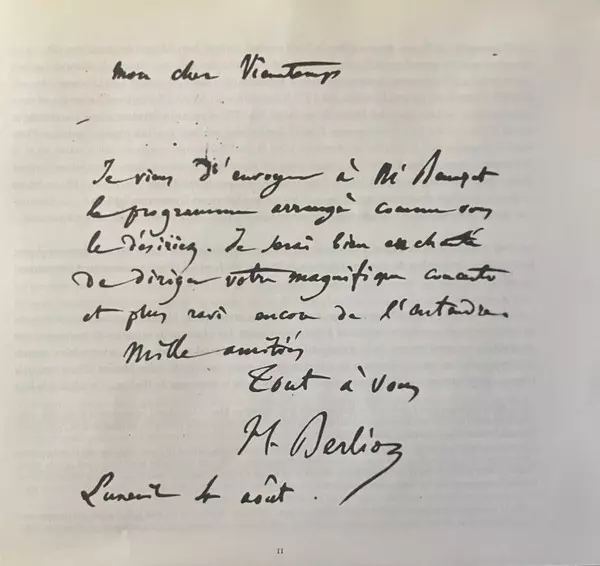 Mon cher Vieuxtemps
Je viens d'envoyer à Mr
le programme arrangé comme vous
le désiriez. Je serai bien enchanté
de diriger votre magnifique concerto
et plus ravi encore de l'entendre.
Mille amitiés
Tout à vous
H. Berlioz
août.
11